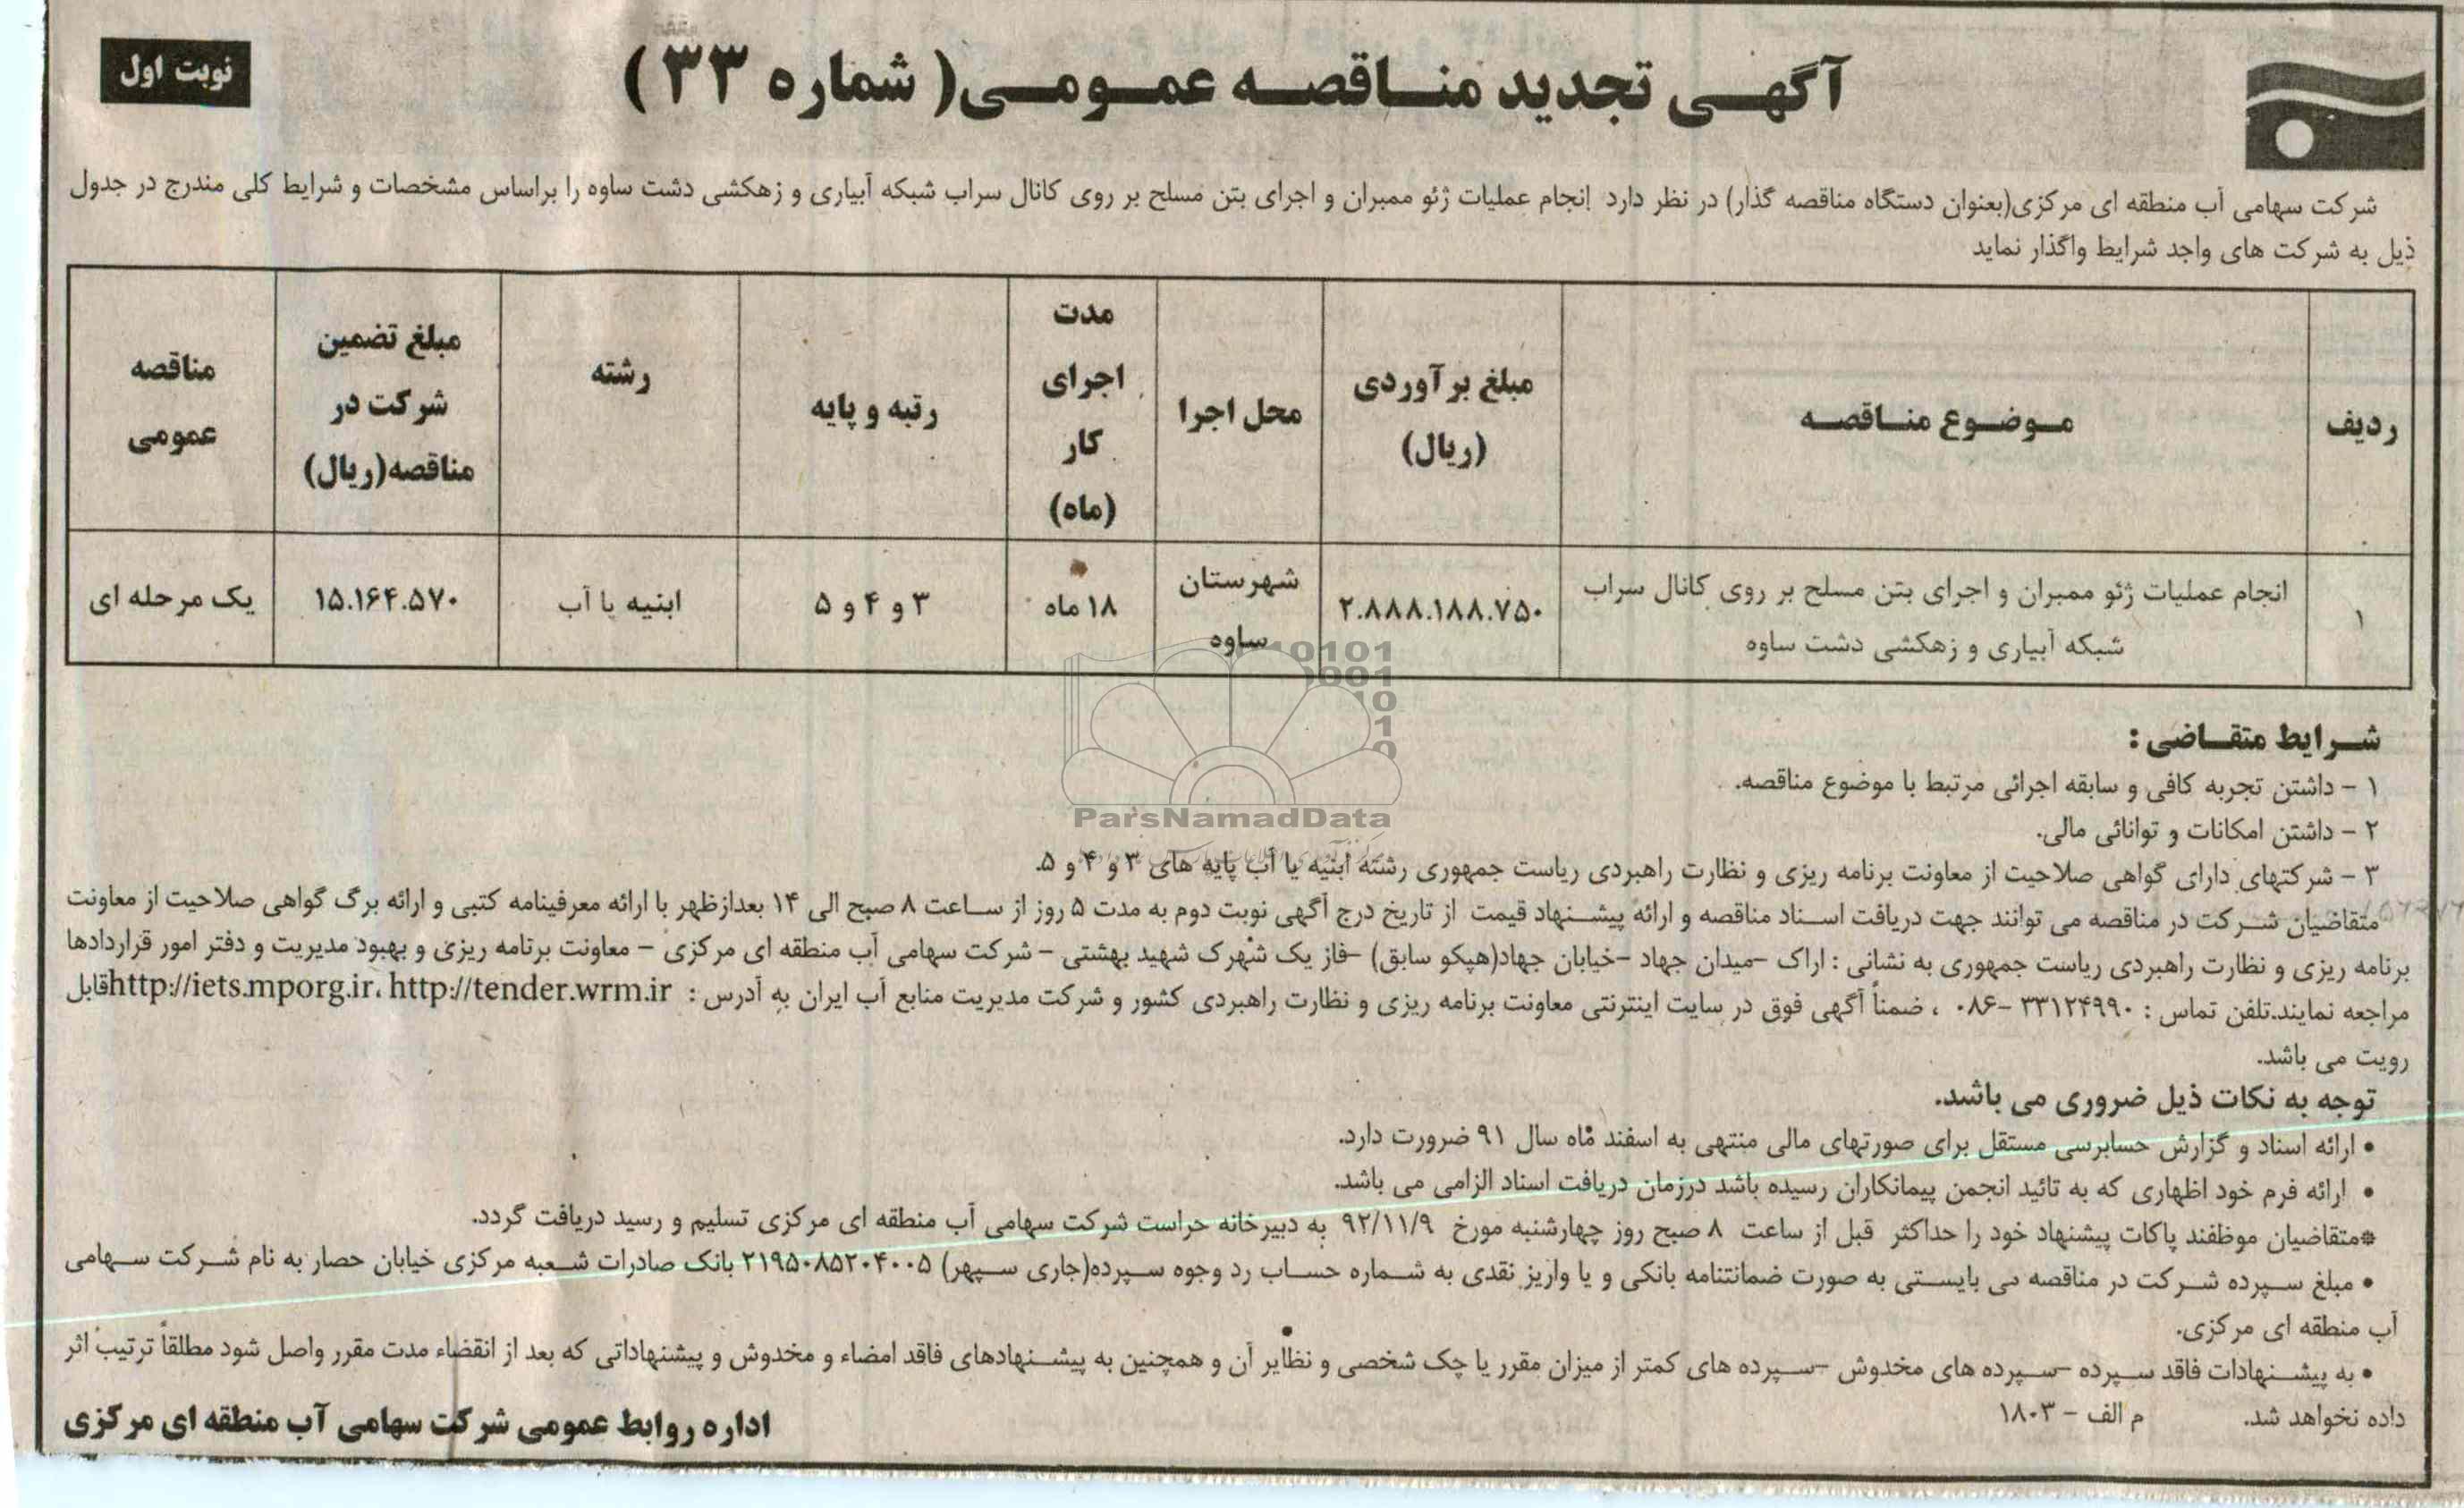 آگهی تجدید مناقصه عمومی( شماره ۳۳ )
نوبت اول
شرکت سهامی آب منطقه ای مرکزی(بعنوان دستگاه مناقصه گذار) در نظر دارد انجام عملیات ژئو ممبران و اجرای بتن مسلح بر روی کانال سراب شبکه آبیاری و زهکشی دشت ساوه را براساس مشخصات و شرایط کلی مندرج در جدول
ذیل به شرکت های واجد شرایط واگذار نماید
ردیف
موضوع مناقصه
مبلغ برآوردی
(ریال)
محل اجرا
مدت
اجرای
کار
(ماه)
رتبه و پایه
رشته
مبلغ تضمین
شرکت در
مناقصه(ریال)
مناقصه
عمومی
۱
انجام عملیات ژئو ممبران و اجرای بتن مسلح بر روی کانال سراب
شبکه آبیاری و زهکشی دشت ساوه
۲.۸۸۸.۱۸۸.۷۵۰
شهرستان
ساوه
۱۸ ماه
۳ و ۴ و ۵
ابنیه یا آب
۱۵.۱۶۴.۵۷۰
یک مرحله ای
شرایط متقاضی :
۱ - داشتن تجربه کافی و سابقه اجرائی مرتبط با موضوع مناقصه.
۲ - داشتن امکانات و توانائی مالی.
ParsNamadData
۳ - شرکتهای دارای گواهی صلاحیت از معاونت برنامه ریزی و نظارت راهبردی ریاست جمهوری رشته ابنیه یا آب پایه های ۳ و ۴ و ۵.
متقاضیان شرکت در مناقصه می توانند جهت دریافت اسناد مناقصه و ارائه پیشنهاد قیمت از تاریخ درج آگهی نوبت دوم به مدت ۵ روز از ساعت ۸ صبح الی ۱۴ بعدازظهر با ارائه معرفینامه کتبی و ارائه برگ گواهی صلاحیت از معاونت
برنامه ریزی و نظارت راهبردی ریاست جمهوری به نشانی : اراک -میدان جهاد -خیابان جهاد(هپکو سابق) -فاز یک شهرک شهید بهشتی - شرکت سهامی آب منطقه ای مرکزی - معاونت برنامه ریزی و بهبود مدیریت و دفتر امور قراردادها
مراجعه نمایند.تلفن تماس : ۳۳۱۲۴۹۹۰ -۰۸۶ ، ضمناً آگهی فوق در سایت اینترنتی معاونت برنامه ریزی و نظارت راهبردی کشور و شرکت مدیریت منابع آب ایران به آدرس : http://iets.mporg.ir، http://tender.wrm.ir قابل
رویت می باشد.
توجه به نکات ذیل ضروری می باشد.
• ارائه اسناد و گزارش حسابرسی مستقل برای صورتهای مالی منتهی به اسفند ماه سال ۹۱ ضرورت دارد.
• ارائه فرم خود اظهاری که به تائید انجمن پیمانکاران رسیده باشد درزمان دریافت اسناد الزامی می باشد.
*متقاضیان موظفند پاکات پیشنهاد خود را حداکثر قبل از ساعت ۸ صبح روز چهارشنبه مورخ ۹۲/۱۱/۹ به دبیرخانه حراست شرکت سهامی آب منطقه ای مرکزی تسلیم و رسید دریافت گردد.
• مبلغ سپرده شرکت در مناقصه می بایستی به صورت ضمانتنامه بانکی و یا واریز نقدی به شماره حساب رد وجوه سپرده(جاری سپهر) ۲۱۹۵۰۸۵۲۰۴۰۰۵ بانک صادرات شعبه مرکزی خیابان حصار به نام شرکت سهامی
آب منطقه ای مرکزی.
• به پیشنهادات فاقد سپرده -سپرده های مخدوش -سپرده های کمتر از میزان مقرر یا چک شخصی و نظایر آن و همچنین به پیشنهادهای فاقد امضاء و مخدوش و پیشنهاداتی که بعد از انقضاء مدت مقرر واصل شود مطلقاً ترتیب اثر
داده نخواهد شد. م الف - ۱۸۰۳
اداره روابط عمومی شرکت سهامی آب منطقه ای مرکزی